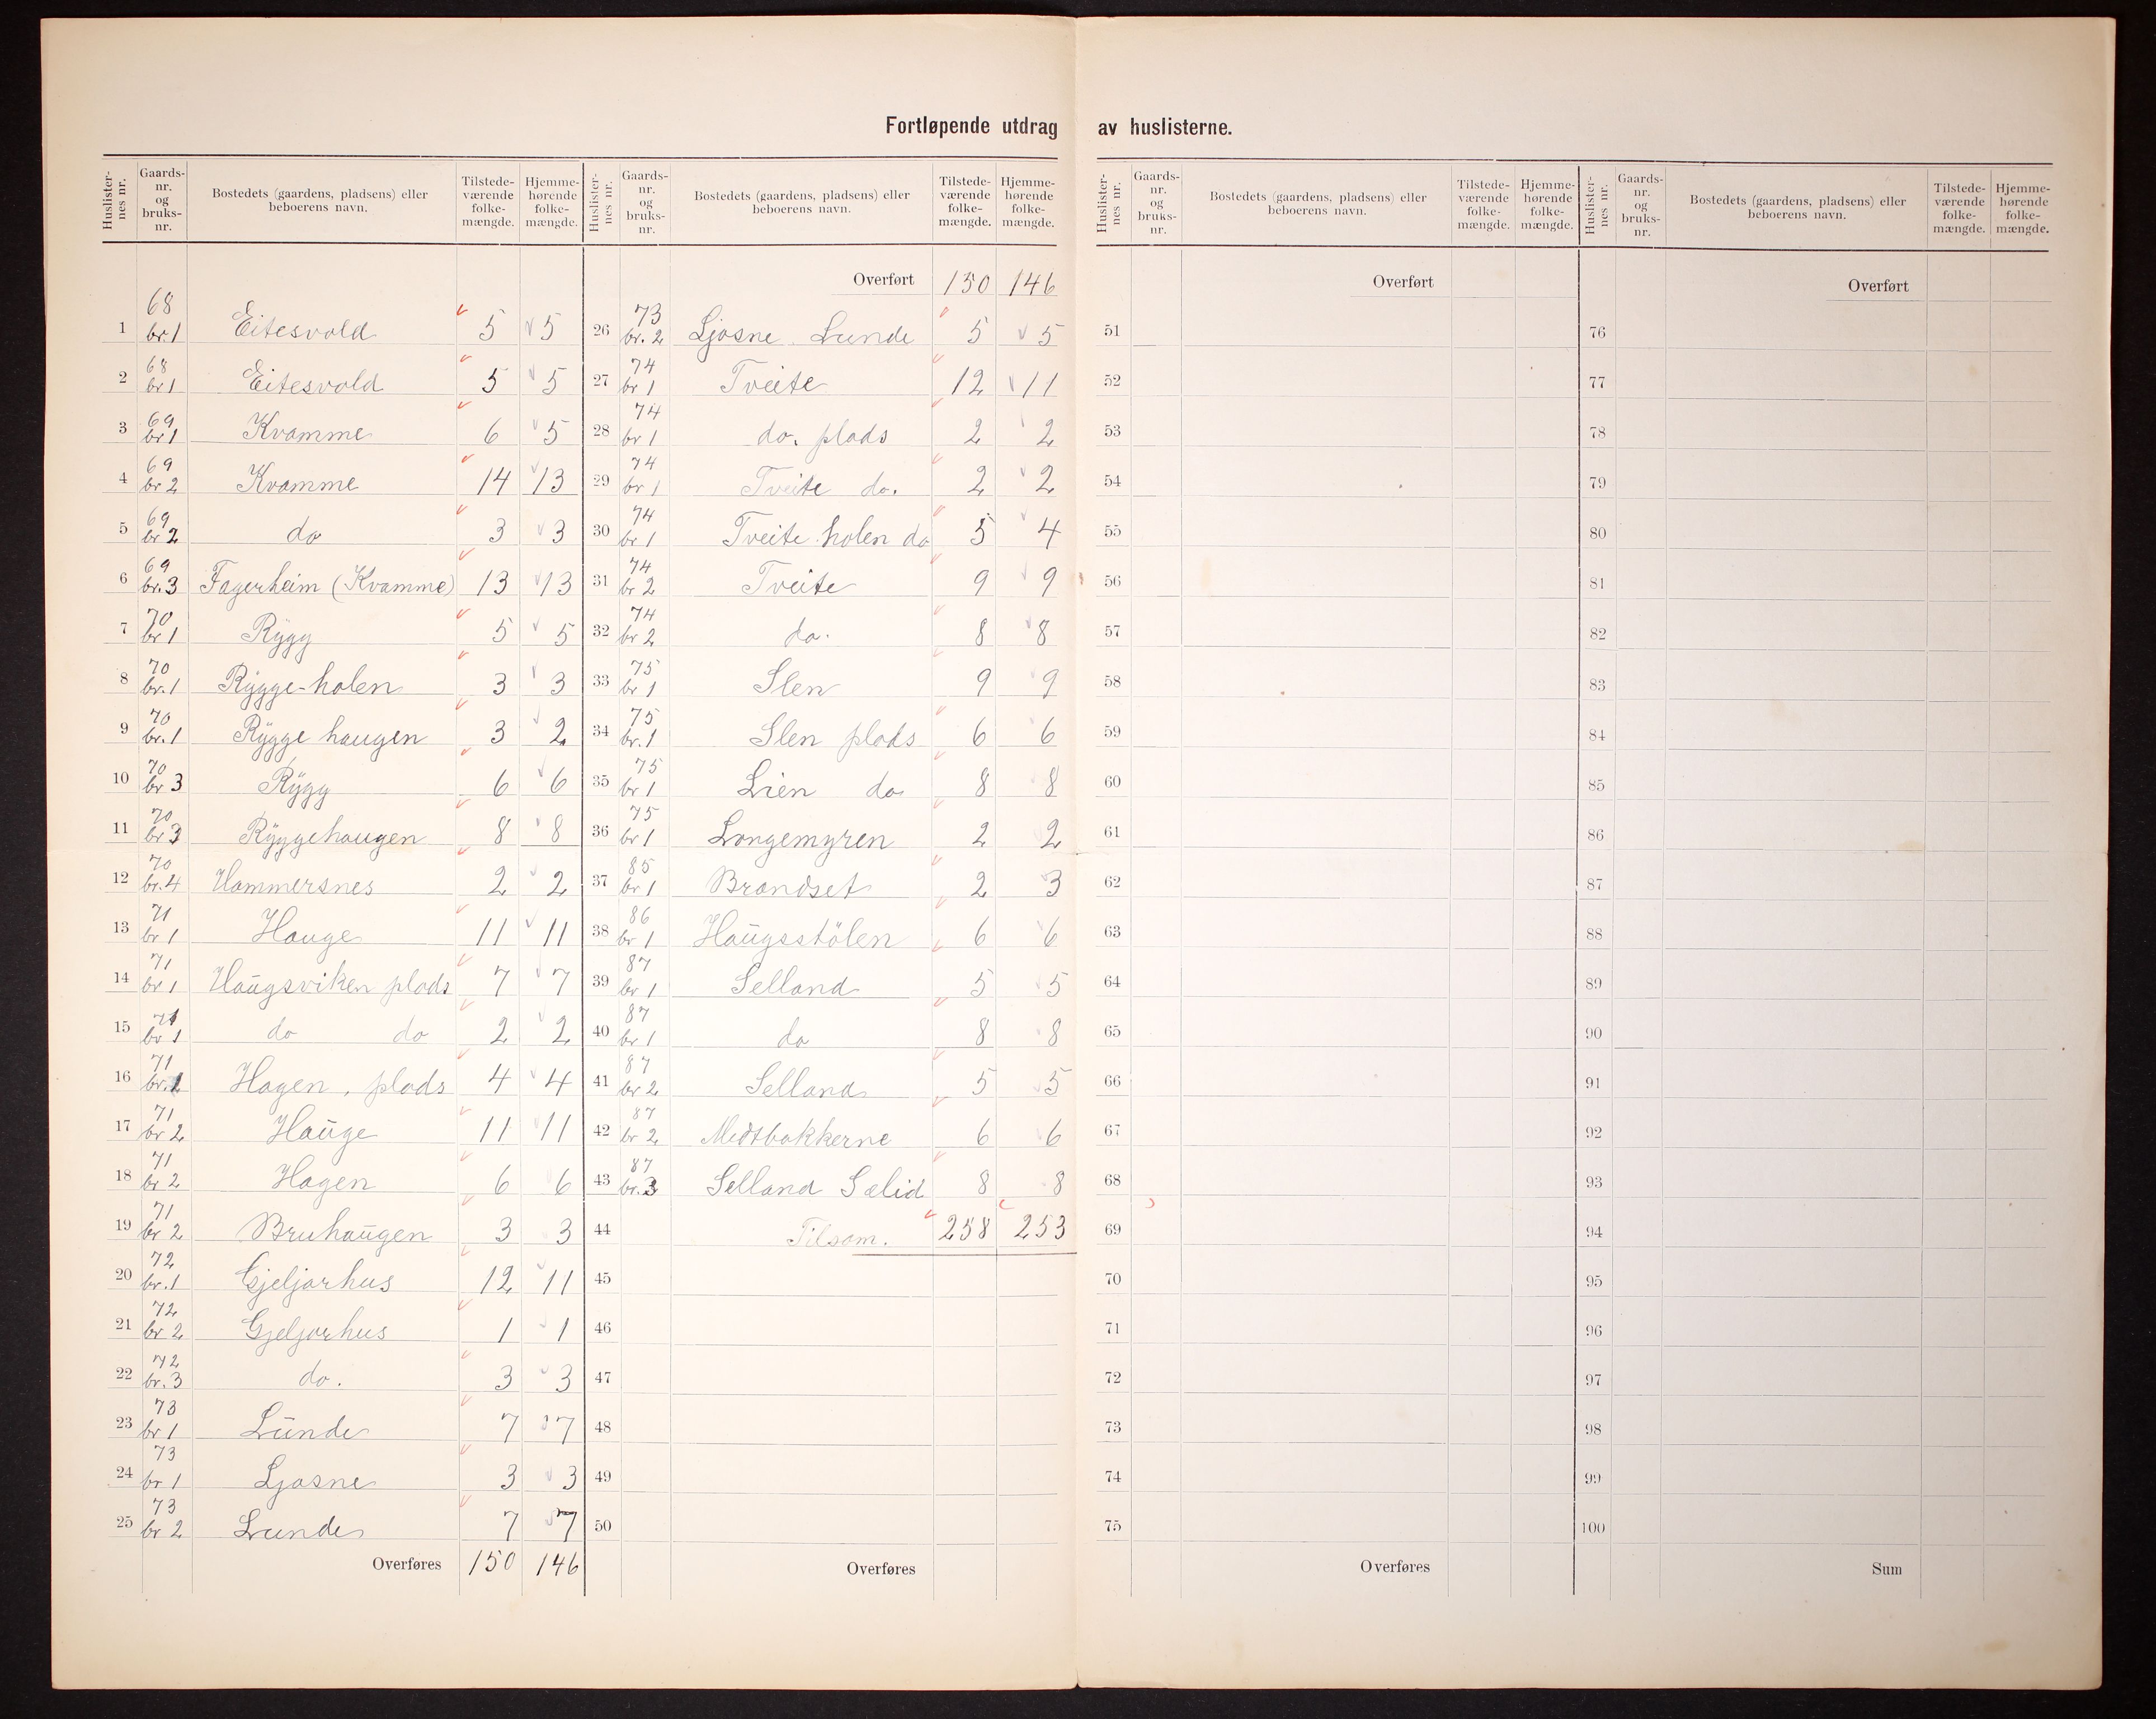 Fortløpende utdrag av huslisterne.
Huslister-nes nr. | Gaards-nr. og bruks-nr. | Bostedets (gaardens, pladsens) eller beboerens navn. | Tilstede-værende folke-mængde. | Hjemme-hørende folke-mængde.
1 | 68 br.1 | Eitesvold | 5 | 5
2 | 68 br 1 | Eitesvold | 5 | 5
3 | 69 br 1 | Kvamme | 6 | 5
4 | 69 br 2 | Kvamme | 14 | 13
5 | 69 br 2 | do | 3 | 3
6 | 69 br.3 | Fagerheim (Kvamme) | 13 | 13
7 | 70 br 1 | Rygg | 5 | 5
8 | 70 br.1 | Rygge-holen | 3 | 3
9 | 70 br.1 | Rygge haugen | 3 | 2
10 | 70 br 3 | Rygg | 6 | 6
11 | 70 br 3 | Ryggehaugen | 8 | 8
12 | 70 br.4 | Hammersnes | 2 | 2
13 | 71 br 1 | Hauge | 11 | 11
14 | 71 br 1 | Haugsviken plads | 7 | 7
15 | 71 br 1 | do do | 2 | 2
16 | 71 br.1 | Hagen, plads | 4 | 4
17 | 71 br 2 | Hauge | 11 | 11
18 | 71 br 2 | Hagen | 6 | 6
19 | 71 br 2 | Bruhaugen | 3 | 3
20 | 72 br.1 | Gjeljarhus | 12 | 11
21 | 72 br 2 | Gjeljarhus | 1 | 1
22 | 72 br.3 | do. | 3 | 3
23 | 73 br 1 | Lunde | 7 | 7
24 | 73 br 1 | Ljosne | 3 | 3
25 | 73 br 2 | Lunde | 7 | 7
Overføres | 150 | 146
Huslister-nes nr. | Gaards-nr. og bruks-nr. | Bostedets (gaardens, pladsens) eller beboerens navn. | Tilstede-værende folke-mængde. | Hjemme-hørende folke-mængde.
Overført | 150 | 146
26 | 73 br. 2 | Ljosne Lunde | 5 | 5
27 | 74 br 1 | Tveite | 12 | 11
28 | 74 br 1 | do. plads | 2 | 2
29 | 74 br 1 | Tveite do. | 2 | 2
30 | 74 br 1 | Tveite holen do | 5 | 4
31 | 74 br 2 | Tveite | 9 | 9
32 | 74 br 2 | do. | 8 | 8
33 | 75 br 1 | Slen | 9 | 9
34 | 75 br.1 | Slen plads | 6 | 6
35 | 75 br 1 | Lien do | 8 | 8
36 | 75 br 1 | Longemyren | 2 | 2
37 | 85 br 1 | Brandset | 2 | 3
38 | 86 br 1 | Haugsstölen | 6 | 6
39 | 87 br 1 | Selland | 5 | 5
40 | 87 br 1 | do | 8 | 8
41 | 87 br 2 | Selland | 5 | 5
42 | 87 br 2 | Medtbakkerne | 6 | 6
43 | 87 br.3 | Selland Sælid | 8 | 8
44 | Tilsam. | 258 | 253
45
46
47
48
49
50
Overføres
Huslister-nes nr. | Gaards-nr. og bruks-nr. | Bostedets (gaardens, pladsens) eller beboerens navn. | Tilstede-værende folke-mængde. | Hjemme-hørende folke-mængde.
Overført
51
52
53
54
55
56
57
58
59
60
61
62
63
64
65
66
67
68
69
70
71
72
73
74
75
Overføres
Huslister-nes nr. | Gaards-nr. og bruks-nr. | Bostedets (gaardens, pladsens) eller beboerens navn. | Tilstede-værende folke-mængde. | Hjemme-hørende folke-mængde.
Overført
76
77
78
79
80
81
82
83
84
85
86
87
88
89
90
91
92
93
94
95
96
97
98
99
100
Sum